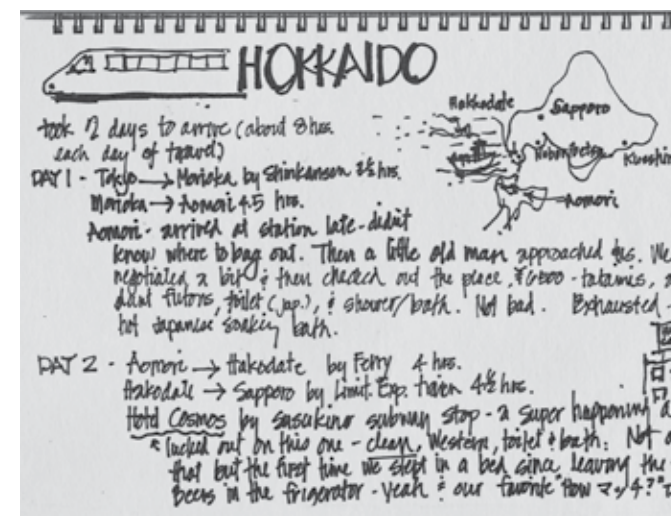 HOKKAIDO
took 2 days to arrive (about 8 hrs.
each day of travel)
Hokkodate
Sapporo
Noboribetsu
Kushir
Aomori
DAY 1 - Tokyo → Morioka by Shinkansen 3½ hrs.
Morioka → Aomori 4.5 hrs.
Aomori - arrived at station late - didnt
know where to bag out. Then a little old man approached us. We
negotiated a bit & then checked out the place, ¥6000 - tatamis,
futons, toilet (jap.), & shower/bath. Not bad. Exhausted -
hot Japanese soaking bath.
DAY 2 - Aomori → Hakodate by Ferry 4 hrs.
Hakodate → Sapporo by Limit. Exp. train 4½ hrs.
Hotel Cosmos by Susukino subway stop - a super happening a
lucked out on this one - clean, Western, toilet & bath. Not
that but the first time we slept in a bed since leaving the
Beers in the frigerator - yeah & our favorite "How マッチ?"